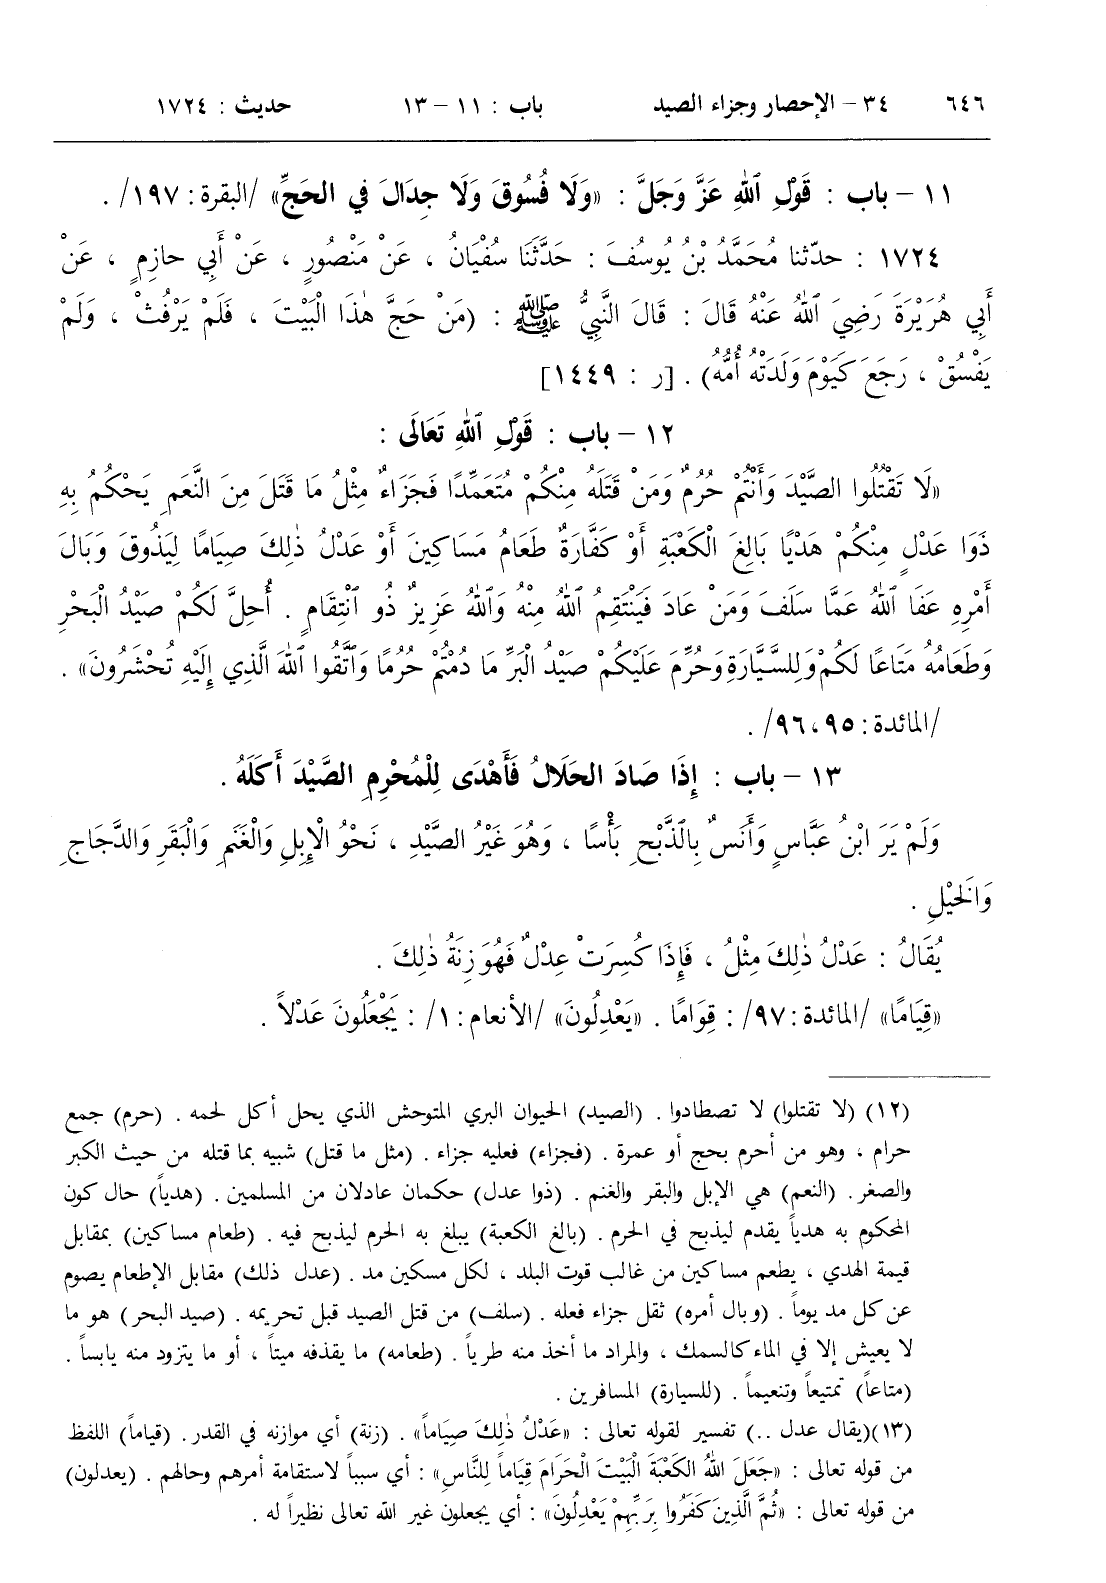 ٦٤٦ ٣٤ – الإحصار وجزاء الصيد باب : ١١ – ١٣ حديث : ١٧٢٤
١١ – باب : قَوْلِ ٱللهِ عَزَّ وَجَلَّ : «وَلَا فُسُوقَ وَلَا جِدَالَ فِي الحَجِّ» /البقرة: ١٩٧/ .
١٧٢٤ : حدّثنا مُحَمَّدُ بْنُ يُوسُفَ : حَدَّثَنَا سُفْيَانُ ، عَنْ مَنْصُورٍ ، عَنْ أَبِي حازِمٍ ، عَنْ
أَبِي هُرَيْرَةَ رَضِيَ ٱللهُ عَنْهُ قَالَ : قَالَ النَّبِيُّ ﷺ : (مَنْ حَجَّ هٰذَا الْبَيْتَ ، فَلَمْ يَرْفُثْ ، وَلَمْ
يَفْسُقْ ، رَجَعَ كَيَوْمَ وَلَدَتْهُ أُمُّهُ) . [ر : ١٤٤٩]
١٢ – باب : قَوْلِ ٱللهِ تَعَالَى :
«لَا تَقْتُلُوا الصَّيْدَ وَأَنْتُمْ حُرُمٌ وَمَنْ قَتَلَهُ مِنْكُمْ مُتَعَمِّدًا فَجَزَاءٌ مِثْلُ ما قَتَلَ مِنَ النَّعَمِ يَحْكُمُ بِهِ
ذَوَا عَدْلٍ مِنْكُمْ هَدْيًا بَالِغَ الْكَعْبَةِ أَوْ كَفَّارَةٌ طَعَامُ مَسَاكِينَ أَوْ عَدْلُ ذٰلِكَ صِيَامًا لِيَذُوقَ وَبَالَ
أَمْرِهِ عَفَا ٱللهُ عَمَّا سَلَفَ وَمَنْ عَادَ فَيَنْتَقِمُ ٱللهُ مِنْهُ وَٱللهُ عَزِيزٌ ذُو ٱنْتِقَامٍ . أُحِلَّ لَكُمْ صَيْدُ الْبَحْرِ
وَطَعَامُهُ مَتَاعًا لَكُمْ وَلِلسَّيَّارَةِ وَحُرِّمَ عَلَيْكُمْ صَيْدُ الْبَرِّ مَا دُمْتُمْ حُرُمًا وَٱتَّقُوا ٱللهَ الَّذِي إِلَيْهِ تُحْشَرُونَ» .
/المائدة: ٩٥، ٩٦/ .
١٣ – باب : إِذَا صَادَ الحَلَالُ فَأَهْدَى لِلْمُحْرِمِ الصَّيْدَ أَكَلَهُ .
وَلَمْ يَرَ ابْنُ عَبَّاسٍ وَأَنَسٌ بِالذَّبْحِ بَأْسًا ، وَهُوَ غَيْرُ الصَّيْدِ ، نَحْوُ الْإِبِلِ وَالْغَنَمِ وَالْبَقَرِ وَالدَّجَاجِ
وَالخَيْلِ .
يُقَالُ : عَدْلُ ذٰلِكَ مِثْلُ ، فَإِذَا كُسِرَتْ عِدْلٌ فَهُوَ زِنَةُ ذٰلِكَ .
«قِيَامًا» /المائدة: ٩٧/ : قِوَامًا . «يَعْدِلُونَ» /الأنعام: ١/ : يَجْعَلُونَ عَدْلاً .
(١٢) (لا تقتلوا) لا تصطادوا . (الصيد) الحيوان البري المتوحش الذي يحل أكل لحمه . (حرم) جمع
حرام ، وهو من أحرم بحج أو عمرة . (فجزاء) فعليه جزاء . (مثل ما قتل) شبيه بما قتله من حيث الكبر
والصغر . (النعم) هي الإبل والبقر والغنم . (ذوا عدل) حكمان عادلان من المسلمين . (هدياً) حال كون
المحكوم به هدياً يقدم ليذبح في الحرم . (بالغ الكعبة) يبلغ به الحرم ليذبح فيه . (طعام مساكين) بمقابل
قيمة الهدي ، يطعم مساكين من غالب قوت البلد ، لكل مسكين مد . (عدل ذلك) مقابل الإطعام يصوم
عن كل مد يوماً . (وبال أمره) ثقل جزاء فعله . (سلف) من قتل الصيد قبل تحريمه . (صيد البحر) هو ما
لا يعيش إلا في الماء كالسمك ، والمراد ما أخذ منه طرياً . (طعامه) ما يقذفه ميتاً ، أو ما يتزود منه يابساً .
(متاعاً) تمتيعاً وتنعيماً . (للسيارة) المسافرين .
(١٣) (يقال عدل ..) تفسير لقوله تعالى : «عَدْلُ ذٰلِكَ صِيَاماً» . (زنة) أي موازنه في القدر . (قياماً) اللفظ
من قوله تعالى : «جَعَلَ اللهُ الكَعْبَةَ الْبَيْتَ الْحَرَامَ قِيَاماً لِلنَّاسِ» : أي سبباً لاستقامة أمرهم وحالهم . (يعدلون)
من قوله تعالى : «ثُمَّ الَّذِينَ كَفَرُوا بِرَبِّهِمْ يَعْدِلُونَ» : أي يجعلون غير الله تعالى نظيراً له .